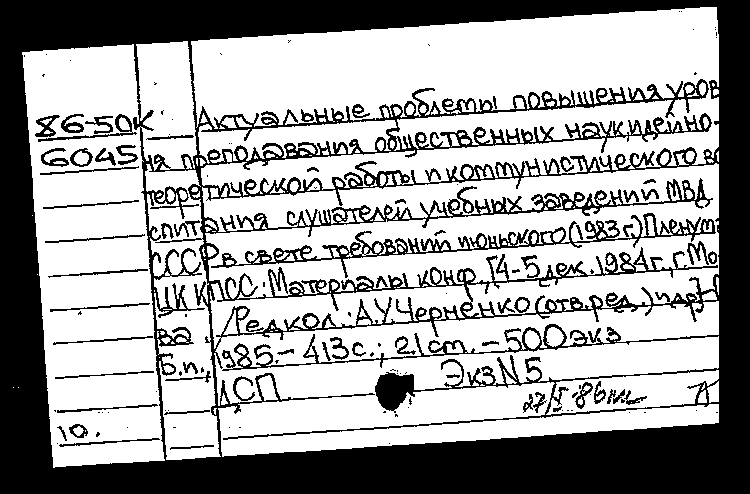 86-50К Актуальные проблемы повышения уров
6045 ня преподавания общественных наук, идейно-
теоретической работы и коммунистического во
спитания слушателей учебных заведений МВД
СССР в свете требований июньского (1983 г.) Пленума
ЦК КПСС: Материалы конф., [4-5 дек. 1984 г., г. Мо
/Редкол.: А.У. Черненко (отв. ред.) и др.]-
ва
Б.п., 1985.- 413 с.; 21 см. - 500 экз.
ДСП Экз N 5.
27/5 86
10.